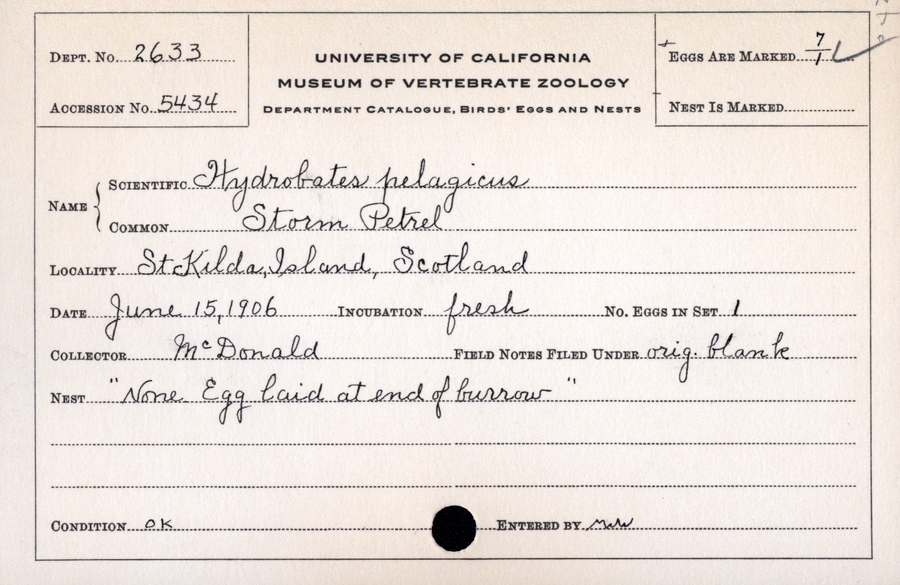 DEPT. NO. 2633
ACCESSION NO. 5434
UNIVERSITY OF CALIFORNIA
MUSEUM OF VERTEBRATE ZOOLOGY
DEPARTMENT CATALOGUE, BIRDS' EGGS AND NESTS
EGGS ARE MARKED 7/1
NEST IS MARKED
NAME
SCIENTIFIC Hydrobates pelagicus
COMMON Storm Petrel
LOCALITY St Kilda, Island, Scotland
DATE June 15, 1906 INCUBATION fresh NO. EGGS IN SET 1
COLLECTOR McDonald FIELD NOTES FILED UNDER orig. blank
NEST "None. Egg laid at end of burrow"
CONDITION OK ENTERED BY